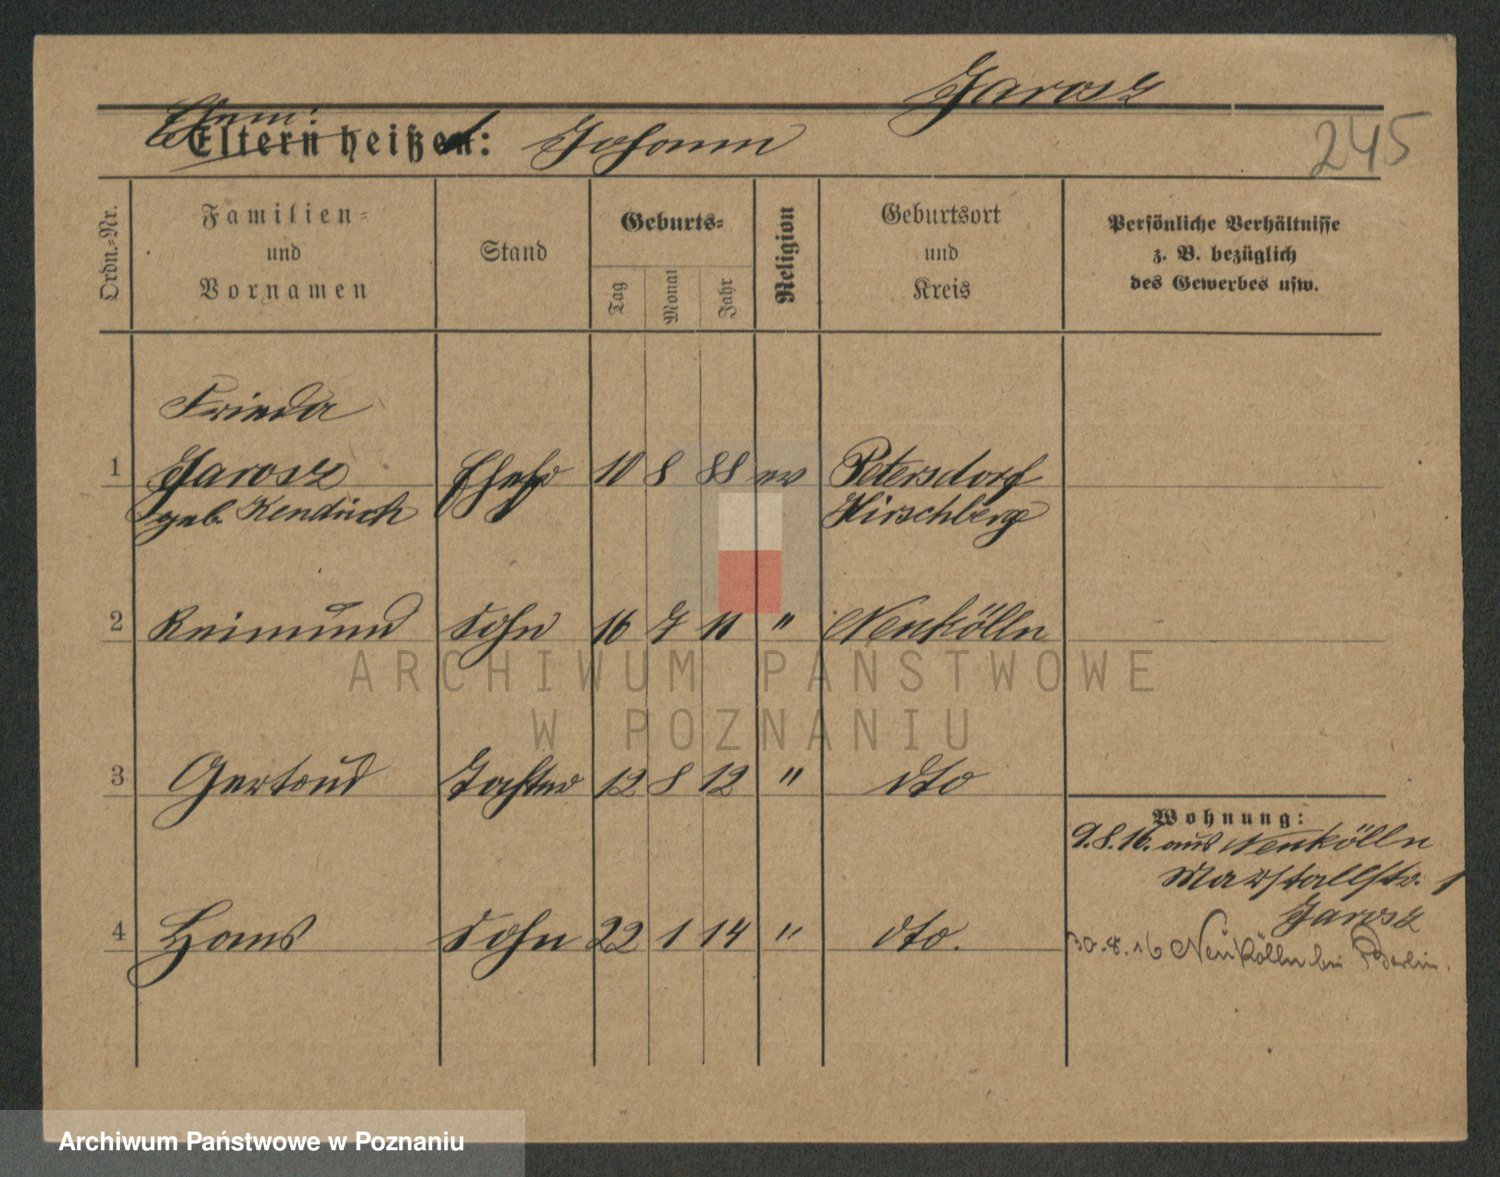 Jarosz
Ehem:
Eltern heißen: Johann
245
Ordn.-Nr.
Familien-
und
Vornamen
Stand
Geburts-
Tag
Monat
Jahr
Religion
Geburtsort
und
Kreis
Persönliche Verhältnisse
z. B. bezüglich
des Gewerbes usw.
Frieda
1 Jarosz Ehefr 10 8 88 ev Petersdorf
geb. Kendrich Hirschberg
2 Reimund Sohn 16 7 11 " Neukölln
ARCHIWUM PAŃSTWOWE
W POZNANIU
3 Gertrud Tochter 12 8 12 " dto
Wohnung:
9.8.16. aus Neukölln
Marstallstr. 1
Jarosz
4 Hans Sohn 22 1 14 " dto.
30.8.16 Neukölln bei Berlin.
Archiwum Państwowe w Poznaniu